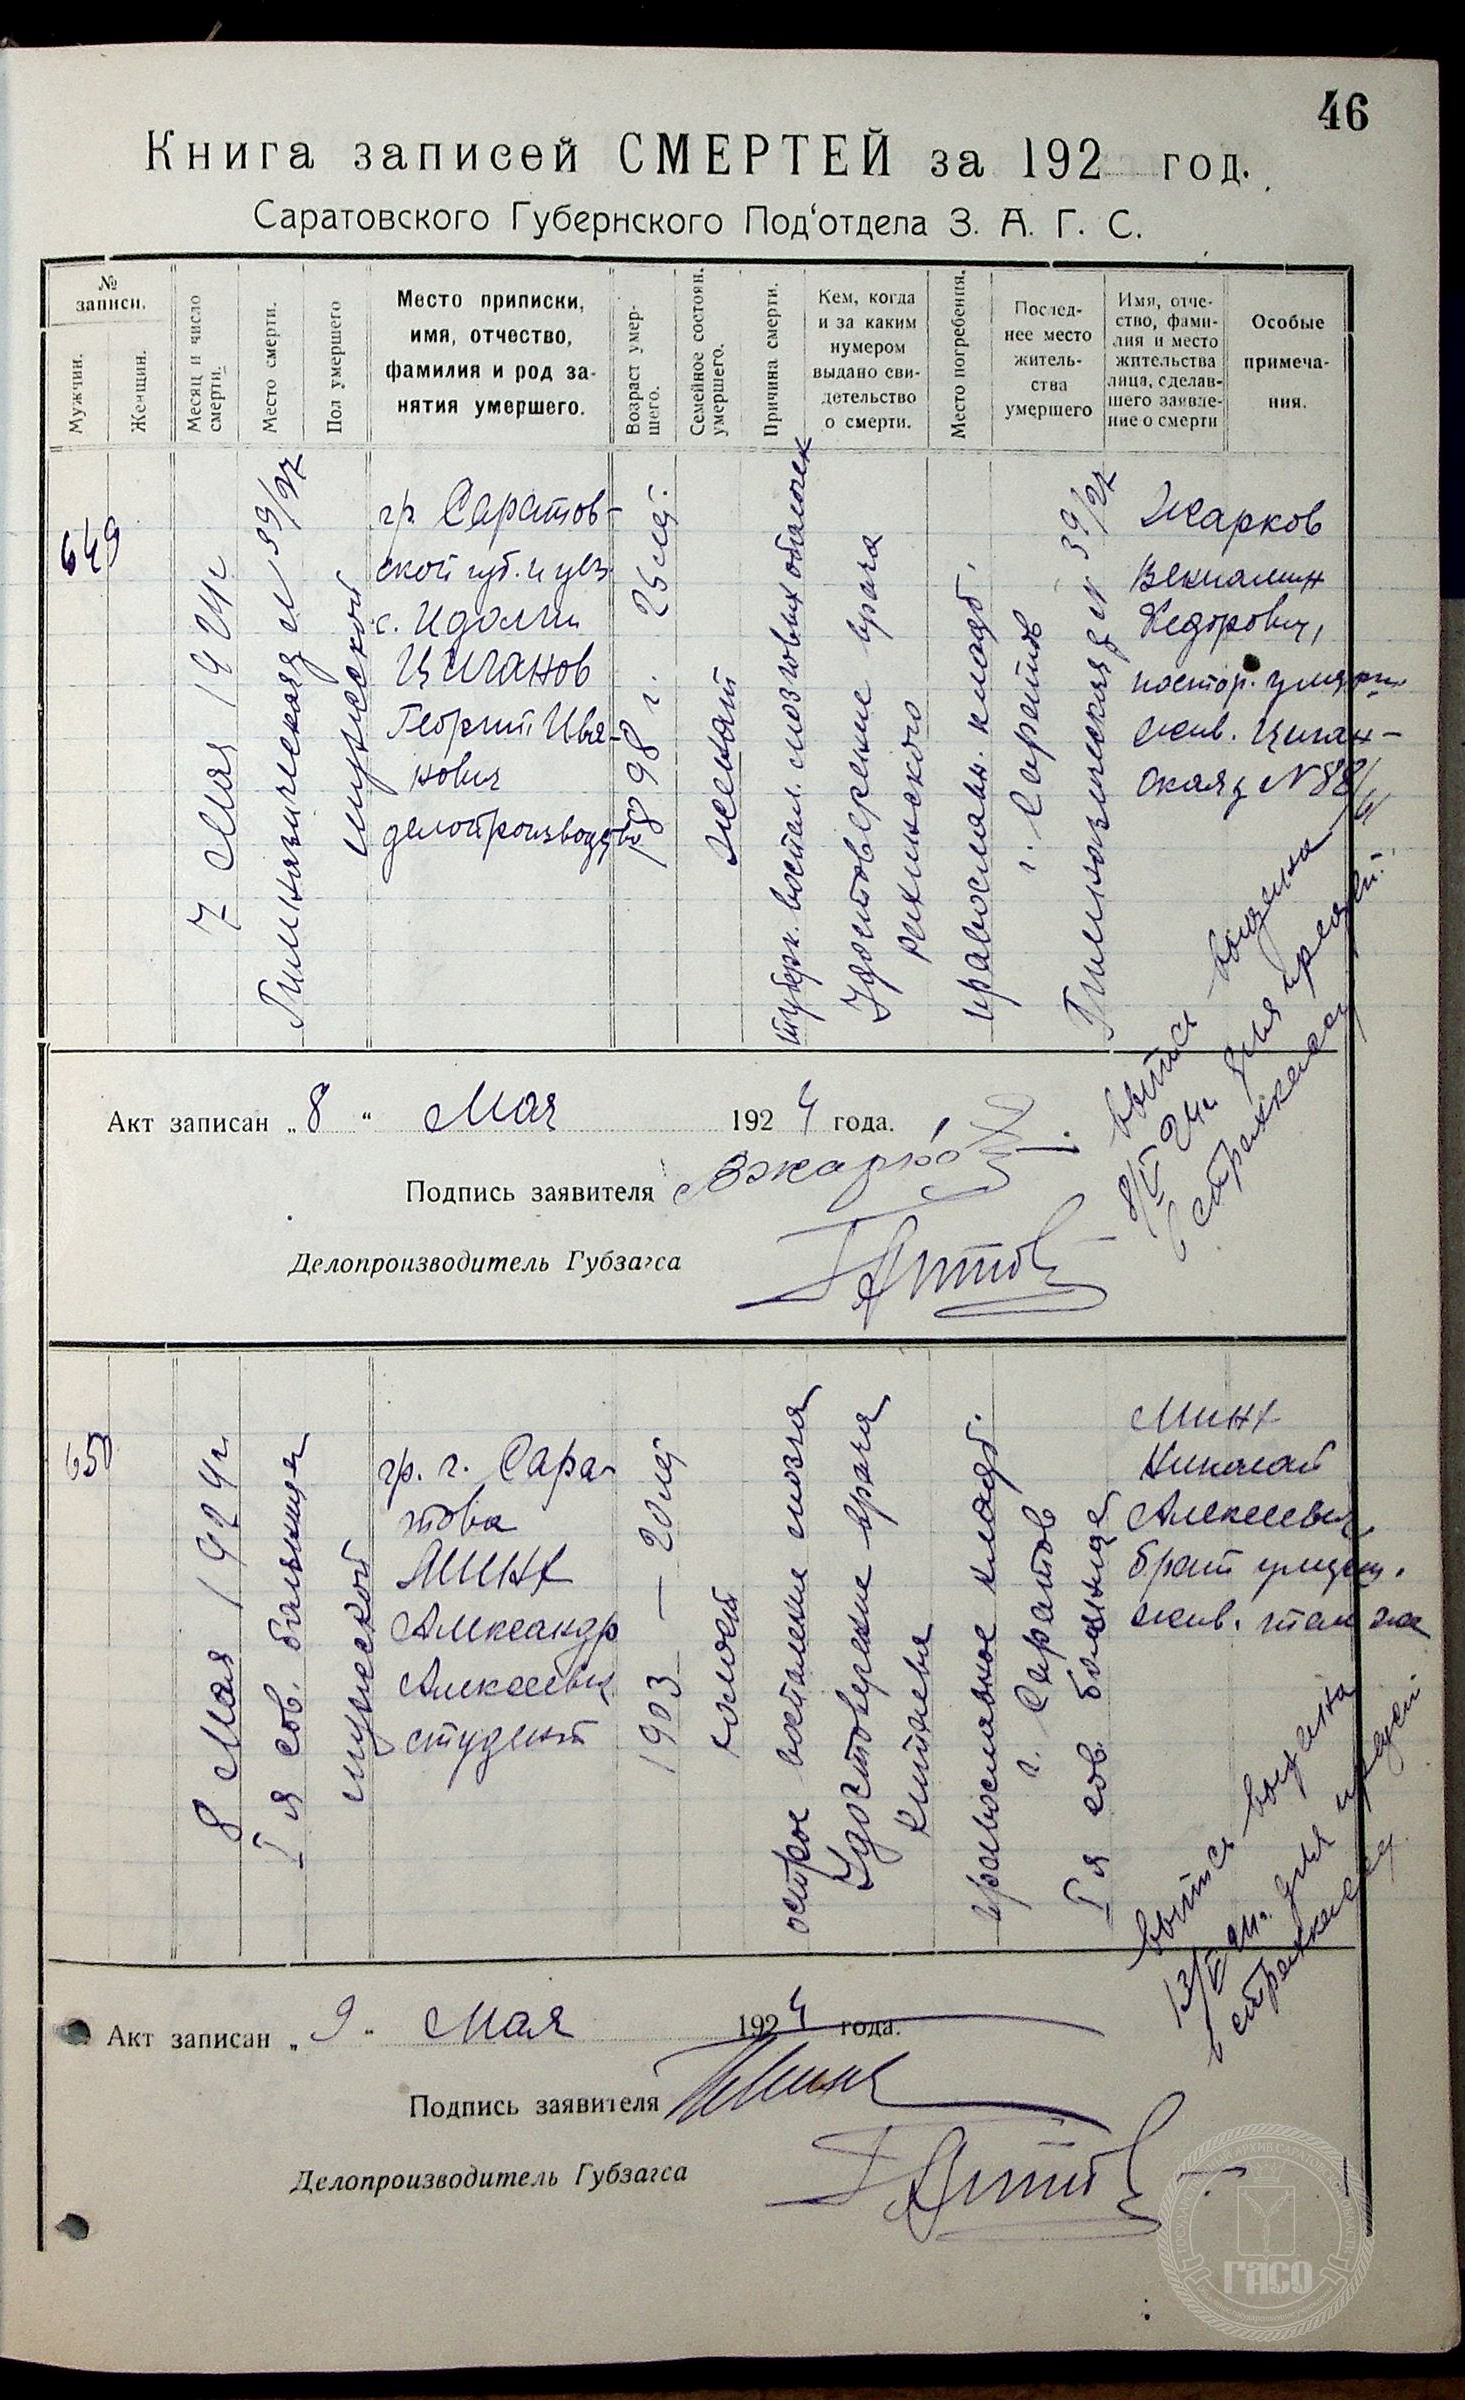 46
Книга записей СМЕРТЕЙ за 192 год.
Саратовского Губернского Под'отдела З. А. Г. С.
№ записи.
Мужчин.
Женщин.
Месяц и число смерти.
Место смерти.
Пол умершего
Место приписки,
имя, отчество,
фамилия и род за-
нятия умершего.
Возраст умер-
шего.
Семейное состоян.
умершего.
Причина смерти.
Кем, когда
и за каким
нумером
выдано сви-
детельство
о смерти.
Место погребения.
Послед-
нее место
житель-
ства
умершего
Имя, отче-
ство, фами-
лия и место
жительства
лица, сделав-
шего заявле-
ние о смерти
Особые
примеча-
ния.
649
7 Мая 1924г.
Гимназическая д № 39/27
мужской
гр. Саратов-
ской губ. и уез.
с. Идолги
Циганов
Георгий Ива-
нович
делопроизвод.
1898 г. 25 лет.
женат
туберк. воспал. мозговых оболочек
Удостоверение врача
православн. кладб.
г. Саратов
Гимназическая д № 39/27
Жарков
Вениамин
Федорович,
жив. Циган-
ская д № 88/
выпись выдана
8/V 24г. для предъяв.
в страхкассу
Акт записан „8“ Мая 1924 года.
Подпись заявителя ВЖарков
Делопроизводитель Губзагса
650
8 Мая 1924г.
I я сов. больница
мужской
гр. г. Сара-
това
Минх
Александр
Алексеевич
студент
1903 — 20 лет
холост
острое воспаление мозга
Удостоверение врача
Китаева
православное кладб.
г. Саратов
I я сов. больница
Минх
Николай
Алексеевич,
брат умерш.
жив. там же
выпись выдана
13/V 24г. для предъяв
в страхкассу.
Акт записан „9“ Мая 1924 года.
Подпись заявителя НМинх
Делопроизводитель Губзагса
ГАСО